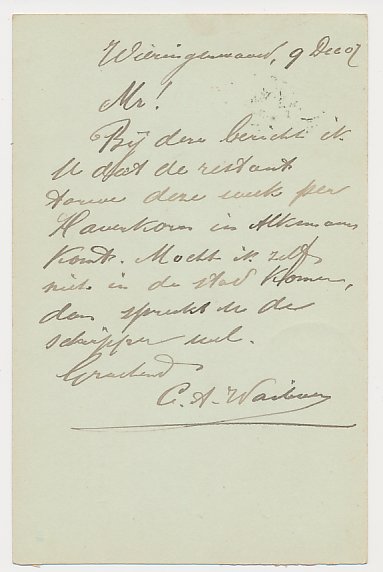 Wieringerwaard, 9 Dec 07
Mr!
Bij deze bericht ik
U dat de restant
tarwe deze week per
Haverkorn in Alkmaar
komt. Mocht ik zelf
niet in de stad komen,
dan spreekt U de
schipper wel.
Groetend
C. A.